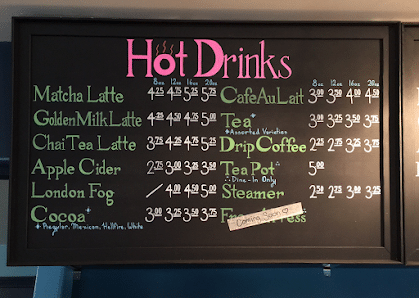 Hot Drinks
8oz 12oz 16oz 20oz
Matcha Latte 4.25 4.75 5.25 5.75
Golden Milk Latte 4.25 4.50 4.75 5.00
Chai Tea Latte 3.75 4.25 4.75 5.25
Apple Cider 2.75 3.00 3.25 3.50
London Fog / 4.00 4.50 5.00
Cocoa* 3.00 3.25 3.50 3.75
* Regular, Mexican, Hellfire, White
8oz 12oz 16oz 20oz
Cafe Au Lait 3.00 3.50 4.00 4.50
Tea* 3.00 3.25 3.50 3.75
*Assorted Varieties
Drip Coffee 2.25 2.75 3.25 3.75
Tea Pot 5.00
Dine-In Only
Steamer 2.50 2.75 3.00 3.25
Coming Soon ♡